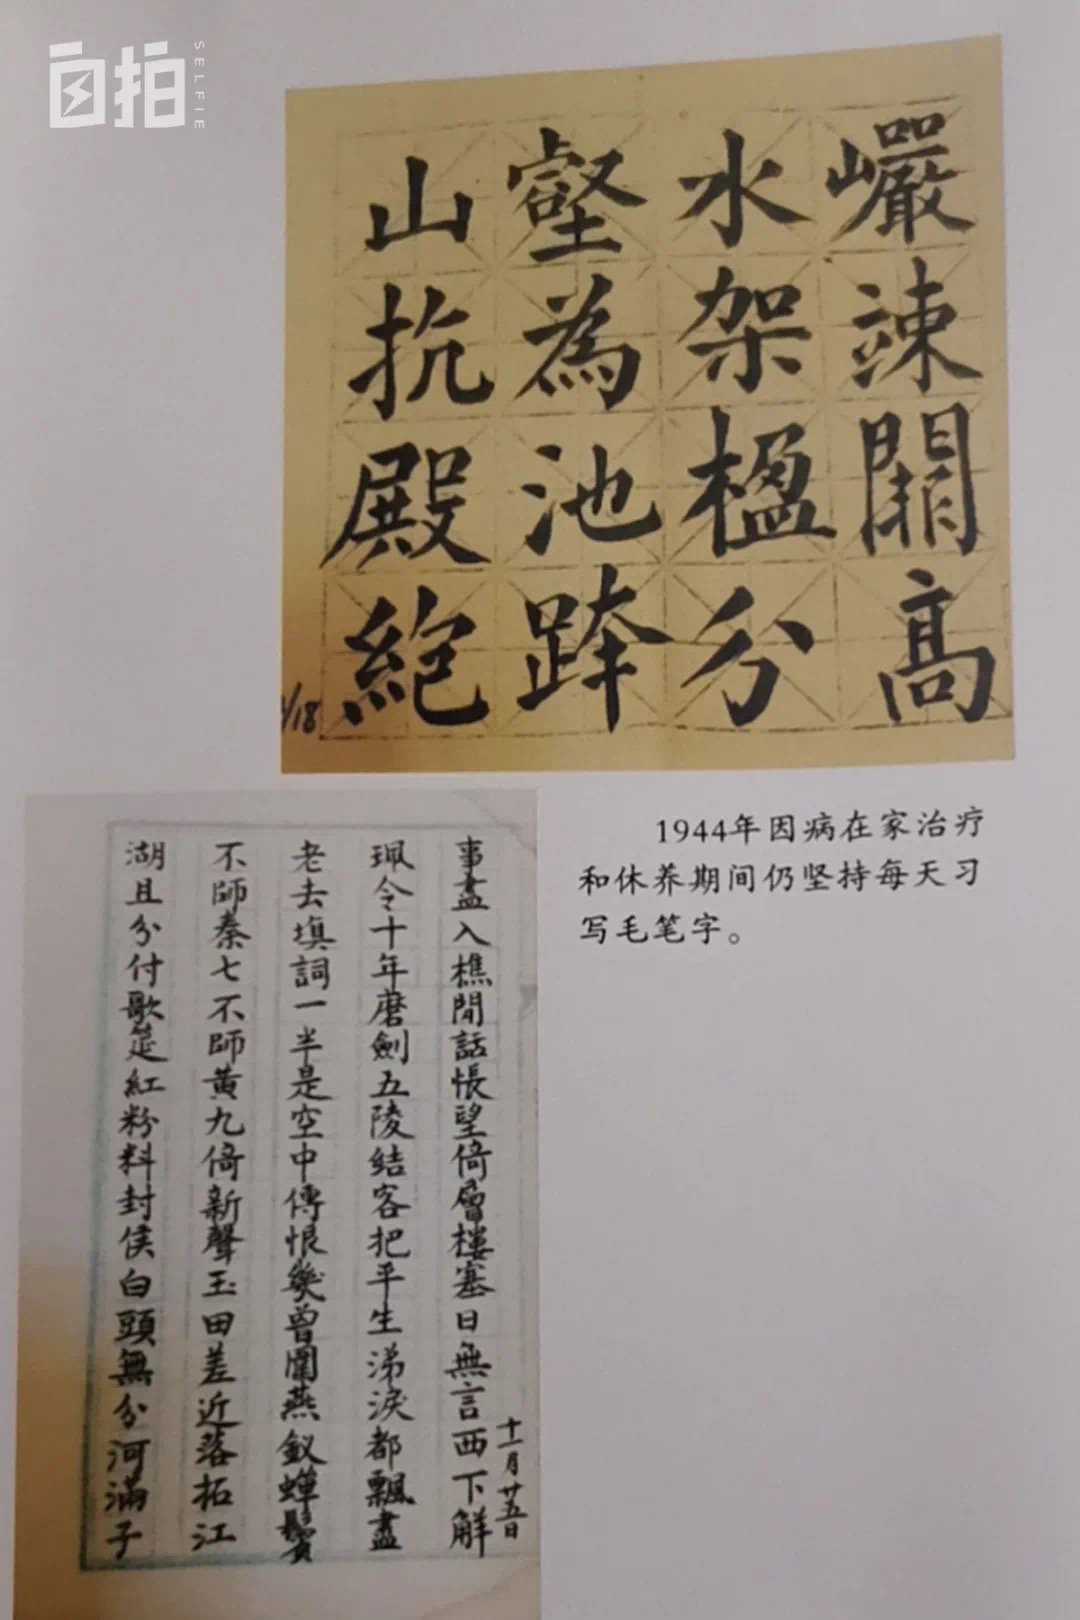 自拍
SELFIE
山抗殿絕
壑為池跨
水架楹分
巖竦闕高
/18
1944年因病在家治疗
和休养期间仍坚持每天习
写毛笔字。
十一月廿五日
事盡入樵閒話悵望倚層樓塞日無言西下解
珮令十年磨劍五陵結客把平生涕淚都飄盡
老去填詞一半是空中傳恨幾曾圍燕釵蟬鬢
不師秦七不師黃九倚新聲玉田差近落拓江
湖且分付歌筵紅粉料封侯白頭無分河滿子